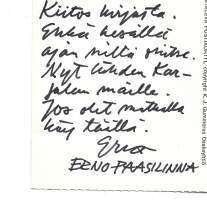 Kiitos kirjasta.
Ehkä kesällä
ajan siltä ohitse.
Nyt lähden Kar-
jalan maille.
Jos olet matkalla
käy täällä.
Erno
ERNO PAASILINNA
POSTIKORTTI, copyright K. J. Gummerus Osakeyhtiö